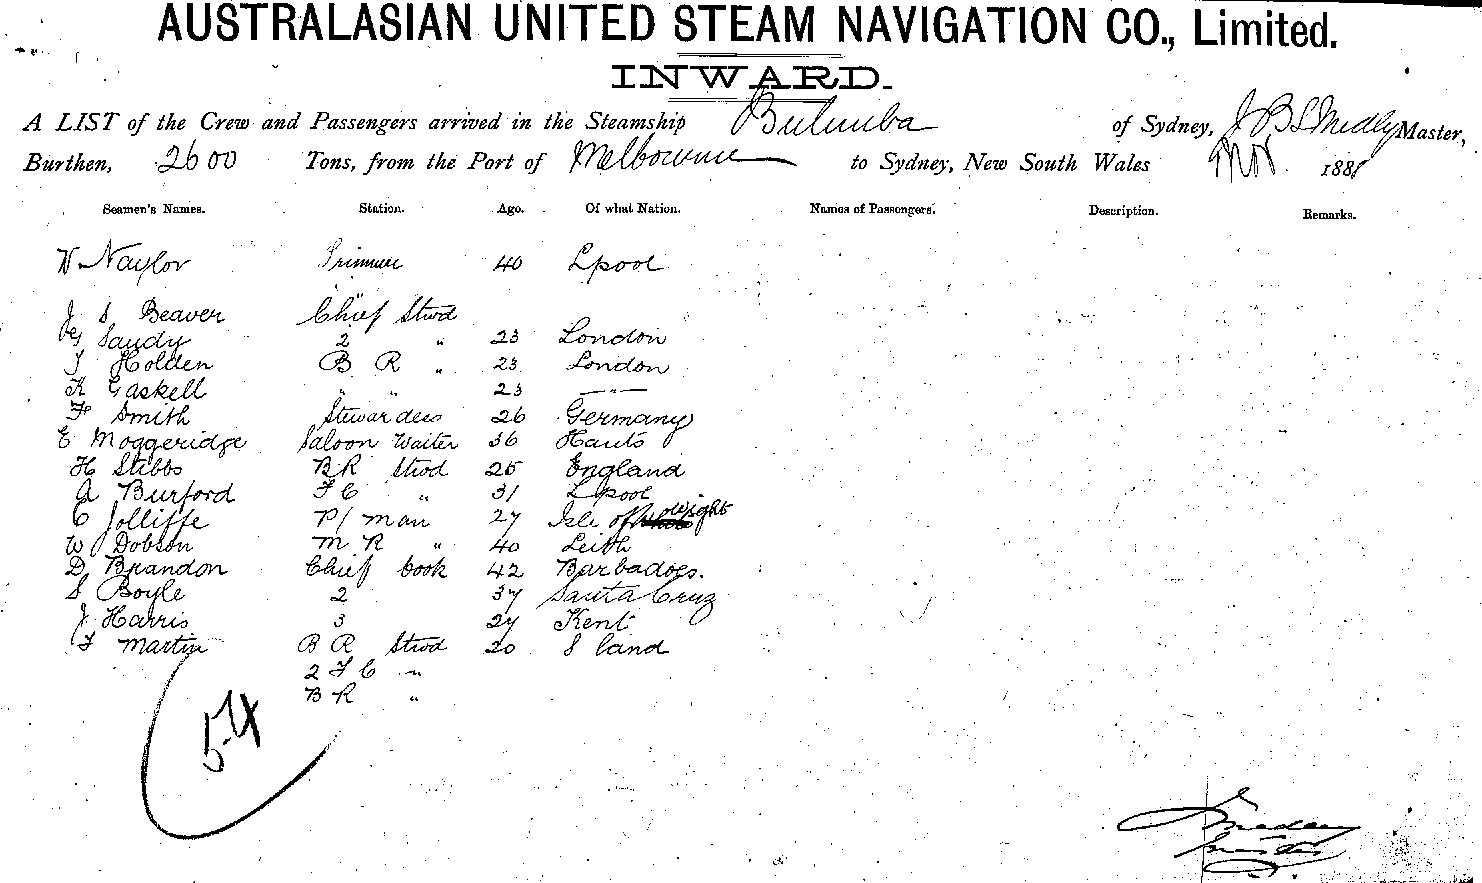 AUSTRALASIAN UNITED STEAM NAVIGATION CO., Limited.
INWARD.
A LIST of the Crew and Passengers arrived in the Steamship Bulimba of Sydney, J B S Medly Master,
Burthen, 2600 Tons, from the Port of Melbourne to Sydney, New South Wales Nov 188
Seamen's Names. Station. Age. Of what Nation. Names of Passengers. Description. Remarks.
W Naylor Trimmer 40 Lpool
J S Beaver Chief Stwd
G Saudy 2 " 23 London
J Holden B R " 23 London
K Gaskell " " 23 —"—
F Smith Stewardess 26 Germany
E Moggeridge Saloon Waiter 36 Hants
H Stibbs B R Stwd 25 England
A Burford F C " 31 Lpool
C Jolliffe P/man 27 Isle of Wight
W Dobson M R " 40 Leith
D Brandon Chief Cook 42 Barbadoes.
S Boyle 2 37 Santa Cruz
J Harris 3 27 Kent
F Martin B R Stwd 20 S land
2 F C "
B R "
54
Master